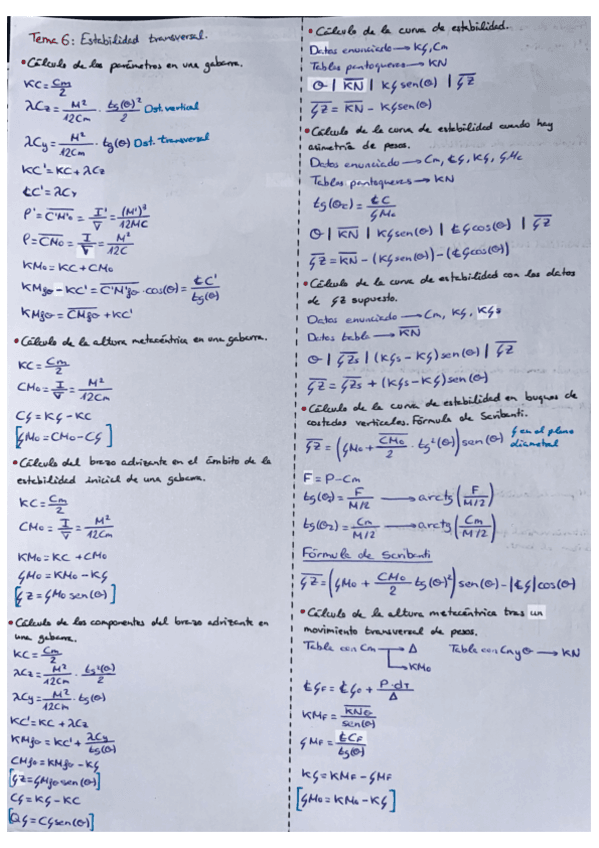 Tema 6: Estabilidad transversal.
• Cálculo de los parámetros en una gabarra.
KC = Cm/2
λCz = M²/12Cm · tg(θ)²/2 Dst. vertical
λCy = M²/12Cm · tg(θ) Dst. transversal
KC' = KC + λCz
ȽC' = λCy
ρ' = C'M'θ = I'/∇ = (M')³/12MC
ρ = CM₀ = I/∇ = M²/12C
KM₀ = KC + CM₀
KMʃθ - KC' = C'M'ʃθ · cos(θ) = ȽC'/tg(θ)
KMʃθ = CMʃθ + KC'
• Cálculo de la altura metacéntrica en una gabarra.
KC = Cm/2
CM₀ = I/∇ = M²/12Cm
CG = KG - KC
[GM₀ = CM₀ - CG]
• Cálculo del brazo adrizante en el ámbito de la
estabilidad inicial de una gabarra.
KC = Cm/2
CM₀ = I/∇ = M²/12Cm
KM₀ = KC + CM₀
GM₀ = KM₀ - KG
[GZ = GM₀ sen(θ)]
• Cálculo de los componentes del brazo adrizante en
una gabarra.
KC = Cm/2
λCz = M²/12Cm · tg²(θ)/2
λCy = M²/12Cm · tg(θ)
KC' = KC + λCz
KMʃθ = KC' + λCy/tg(θ)
CMʃθ = KMʃθ - KG
[GZ = GMʃθ sen(θ)]
CG = KG - KC
[QG = CG sen(θ)]
• Cálculo de la curva de estabilidad.
Datos enunciado → KG, Cm
Tablas pantoqueras → KN
θ | KN | KG sen(θ) | GZ
GZ = KN - KG sen(θ)
• Cálculo de la curva de estabilidad cuando hay
asimetría de pesos.
Datos enunciado → Cm, ȽG, KG, GM₀
Tablas pantoqueras → KN
tg(θe) = ȽC/GM₀
θ | KN | KG sen(θ) | ȽG cos(θ) | GZ
GZ = KN - (KG sen(θ)) - (ȽG cos(θ))
• Cálculo de la curva de estabilidad con los datos
de GZ supuesto.
Datos enunciado → Cm, KG, KGs
Datos tabla → KN
θ | GZs | (KGs - KG) sen(θ) | GZ
GZ = GZs + (KGs - KG) sen(θ)
• Cálculo de la curva de estabilidad en buques de
costados verticales. Fórmula de Scribanti.
GZ = (GM₀ + CM₀/2 · tg²(θ)) sen(θ) G en el plano
diametral
F = P - Cm
tg(θ₁) = F/M/2 → arctg(F/M/2)
tg(θ₂) = Cm/M/2 → arctg(Cm/M/2)
Fórmula de Scribanti
GZ = (GM₀ + CM₀/2 tg(θ)²) sen(θ) - |ȽG| cos(θ)
• Cálculo de la altura metacéntrica tras un
movimiento transversal de pesos.
Tabla con Cm → Δ Tabla con Cm y θ → KN
→ KM₀
ȽGF = ȽG₀ + P·dT/Δ
KMF = KNθ/sen(θ)
GMF = ȽCF/tg(θ)
KG = KMF - GMF
[GM₀ = KM₀ - KG]